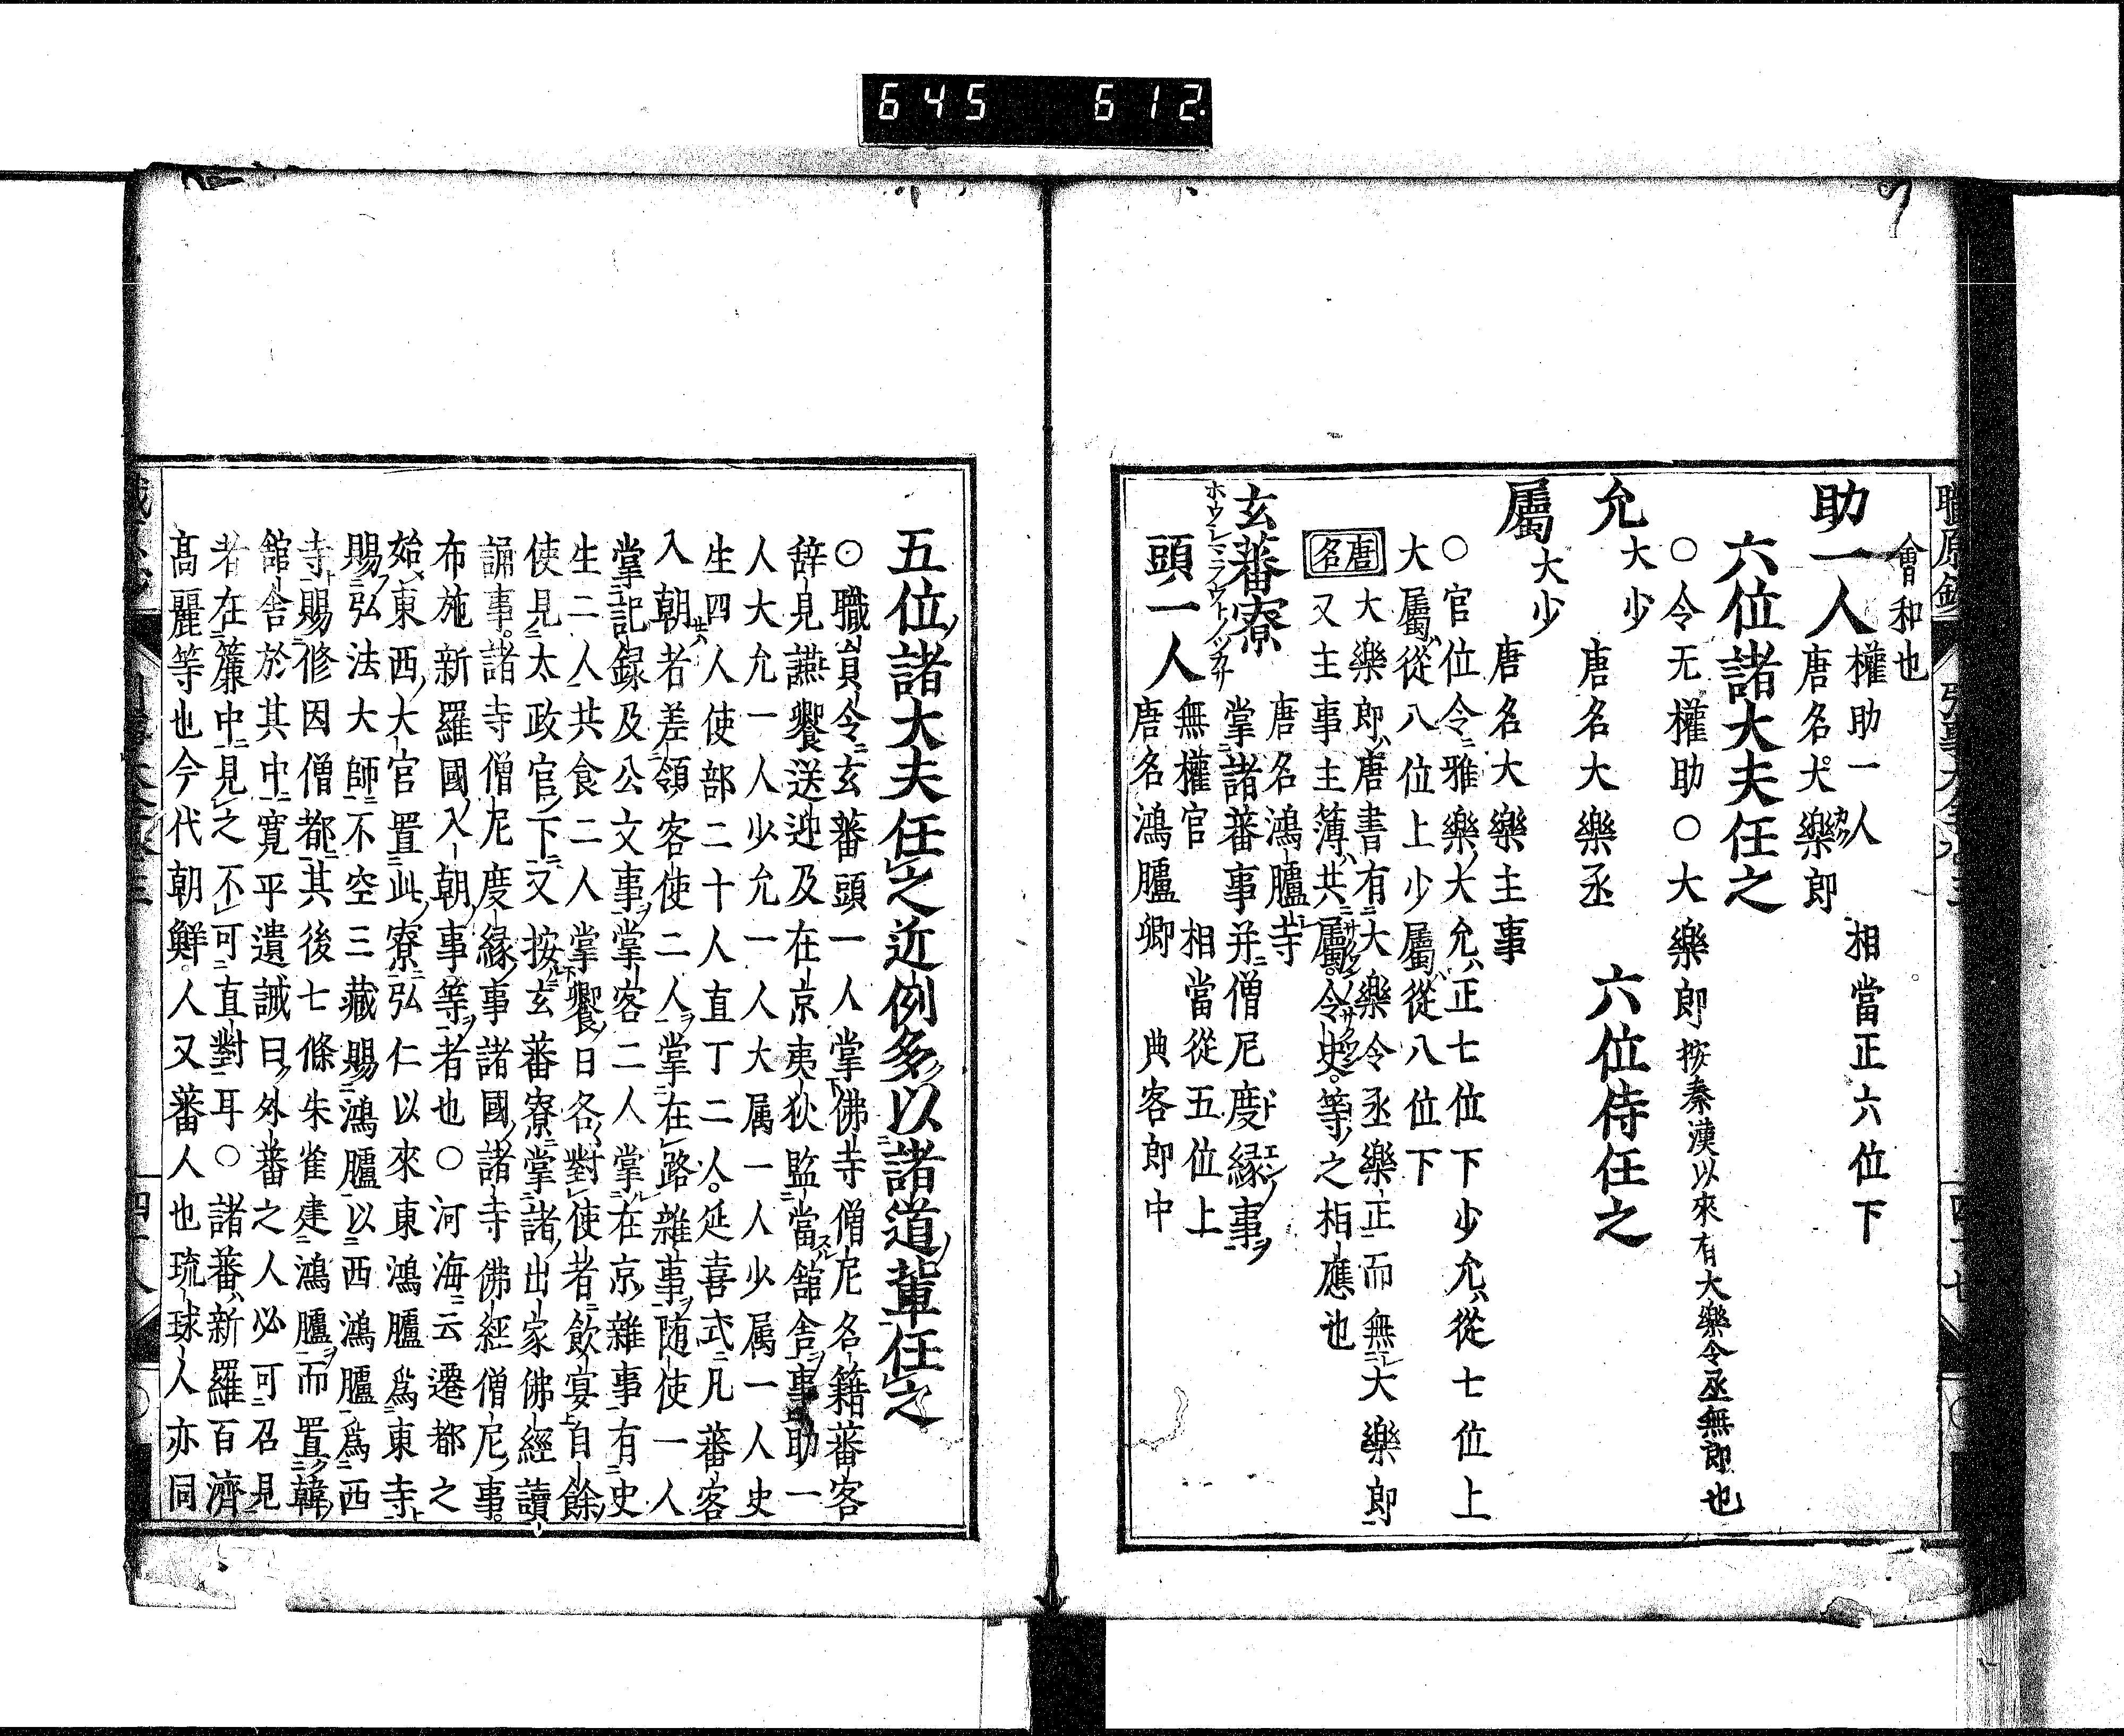 645 612
會和也
助一人 權助一人 相當正六位下
唐名大樂郎
六位諸大夫任之
○令无權助○大樂郎按秦漢以來有大樂令丞無郎也
允 大少 唐名大樂丞 六位侍任之
屬 大少 唐名大樂主事
○官位令雅樂大允正七位下少允從七位上
大屬從八位上少屬從八位下
唐名 大樂郎唐書有大樂令丞樂正而無大樂郎
又主事主薄共屬令史等之相應也
玄蕃寮 唐名鴻臚寺
掌諸蕃事并僧尼度縁事
ホウレミニフウトノツカサ
頭一人 無權官 相當從五位上
唐名鴻臚卿 典客郎中
五位諸大夫任之近例多以諸道輩任之
○職員令玄蕃頭一人掌佛寺僧尼名籍蕃客
辞見讌饗送迎及在京夷狄監當舘舎事助一
人大允一人少允一人大属一人少属一人史
生四人使部二十人直丁二人。延喜式凡蕃客
入朝者差領客使二人掌在路雑事随使一人
掌記録及公文事掌客二人掌在京雑事有史
生二人共食二人掌饗日各對使者飲宴自餘
使見太政官下又按玄蕃寮掌諸出家佛經讀
誦事。諸寺僧尼度縁事諸國諸寺佛經僧尼事。
布施新羅國入朝事等者也○河海云遷都之
始東西大官置此寮弘仁以來東鴻臚爲東寺
賜弘法大師不空三藏賜鴻臚以西鴻臚爲西
寺賜修因僧都其後七條朱雀建鴻臚而置韓
舘舎於其中寛平遺誡曰外蕃之人必可召見
者在簾中見之不可直對耳○諸蕃新羅百濟
髙麗等也今代朝鮮人又蕃人也琉球人亦同